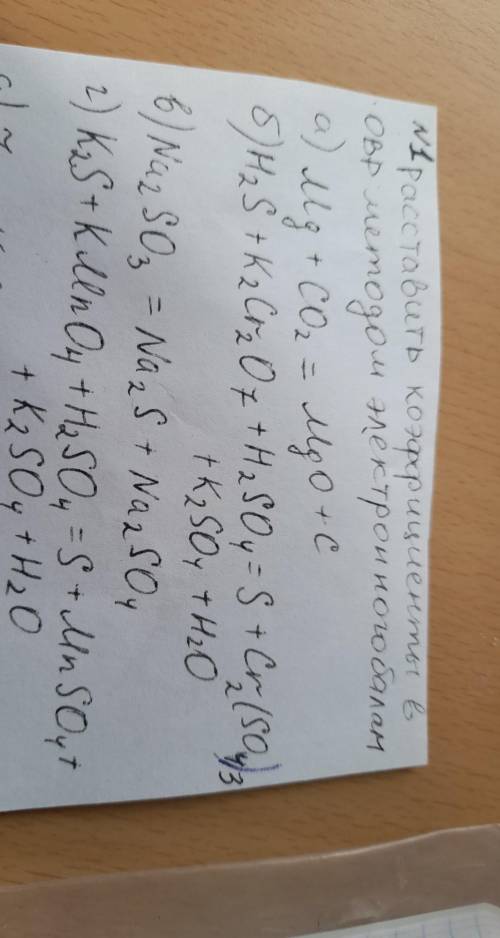 №1 расставить коэффициенты в
ОВР методом электронногобалан
а) Mg + CO2 = MgO + C
б) H2S + K2Cr2O7 + H2SO4 = S + Cr2(SO4)3
+ K2SO4 + H2O
в) Na2SO3 = Na2S + Na2SO4
г) K2S + KMnO4 + H2SO4 = S + MnSO4 +
+ K2SO4 + H2O